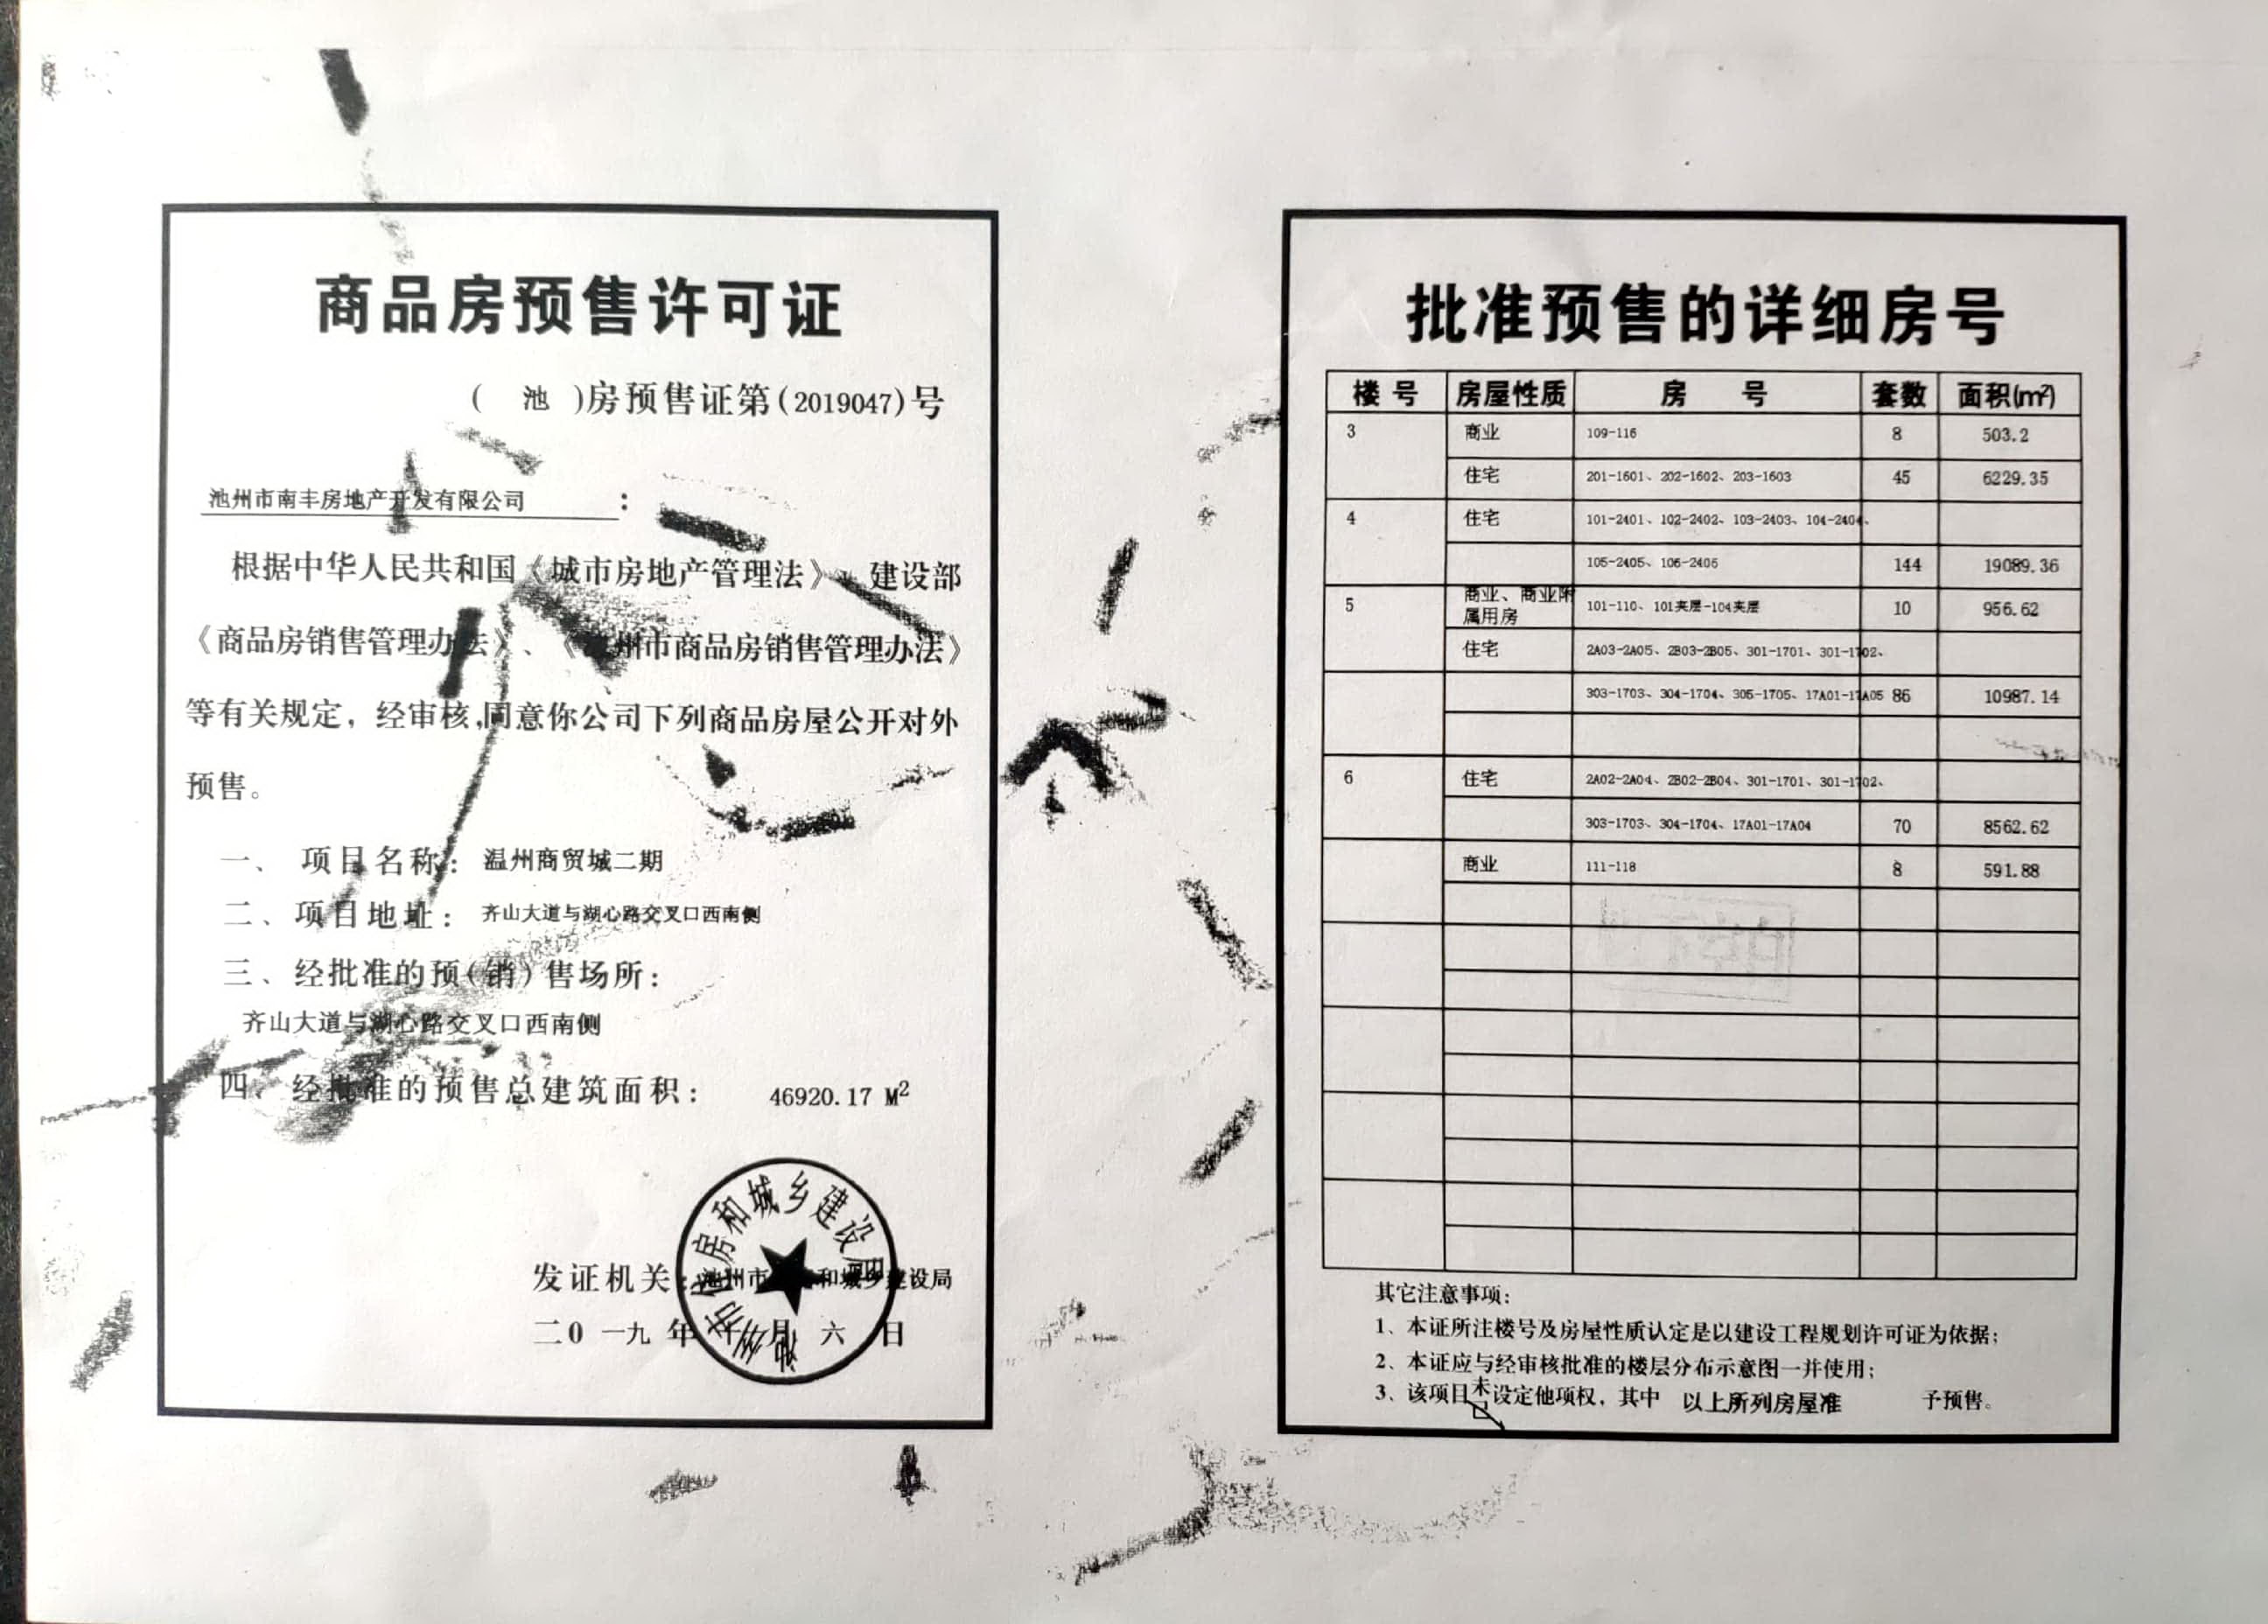 商品房预售许可证
( 池 )房预售证第(2019047)号
池州市南丰房地产开发有限公司：
根据中华人民共和国《城市房地产管理法》、建设部
《商品房销售管理办法》、《 州市商品房销售管理办法》
等有关规定，经审核，同意你公司下列商品房屋公开对外
预售。
一、 项目名称： 温州商贸城二期
二、项目地址： 齐山大道与湖心路交叉口西南侧
三、经批准的预(销)售场所：
齐山大道与湖心路交叉口西南侧
四、经批准的预售总建筑面积： 46920.17 M²
池州市住房和城乡建设局
发证机关： 州市 和城乡建设局
二0一九 年 月 六 日
批准预售的详细房号
楼 号 房屋性质 房 号 套数 面积(m²)
3 商业 109-116 8 503.2
住宅 201-1601、202-1602、203-1603 45 6229.35
4 住宅 101-2401、102-2402、103-2403、104-2404、
105-2405、106-2406 144 19089.36
5 商业、商业附属用房 101-110、101夹层-104夹层 10 956.62
住宅 2A03-2A05、2B03-2B05、301-1701、301-1702、
303-1703、304-1704、305-1705、17A01-17A05 86 10987.14
6 住宅 2A02-2A04、2B02-2B04、301-1701、301-1702、
303-1703、304-1704、17A01-17A04 70 8562.62
商业 111-118 8 591.88
其它注意事项：
1、本证所注楼号及房屋性质认定是以建设工程规划许可证为依据；
2、本证应与经审核批准的楼层分布示意图一并使用；
3、该项目未已设定他项权，其中 以上所列房屋准 予预售。